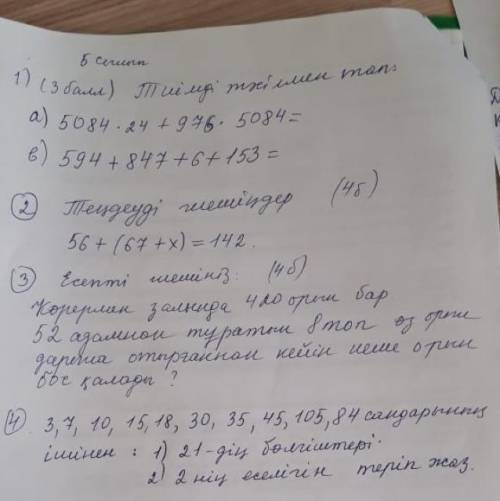 5 сынып
1) (3 балл) Тиімді тәсілмен тап:
а) 5084 · 24 + 976 · 5084 =
в) 594 + 847 + 6 + 153 =
2 Теңдеуді шешіңдер (4б)
56 + (67 + х) = 142.
3 Есепті шешіңіз: (4б)
Көрермен залында 420 орын бар
52 адамнан тұратын 8 топ өз орын
дарына отырғаннан кейін неше орын
бос қалады?
4 3, 7, 10, 15, 18, 30, 35, 45, 105, 84 сандарының
ішінен: 1) 21-дің бөлгіштері.
2) 2 нің еселігін теріп жаз.